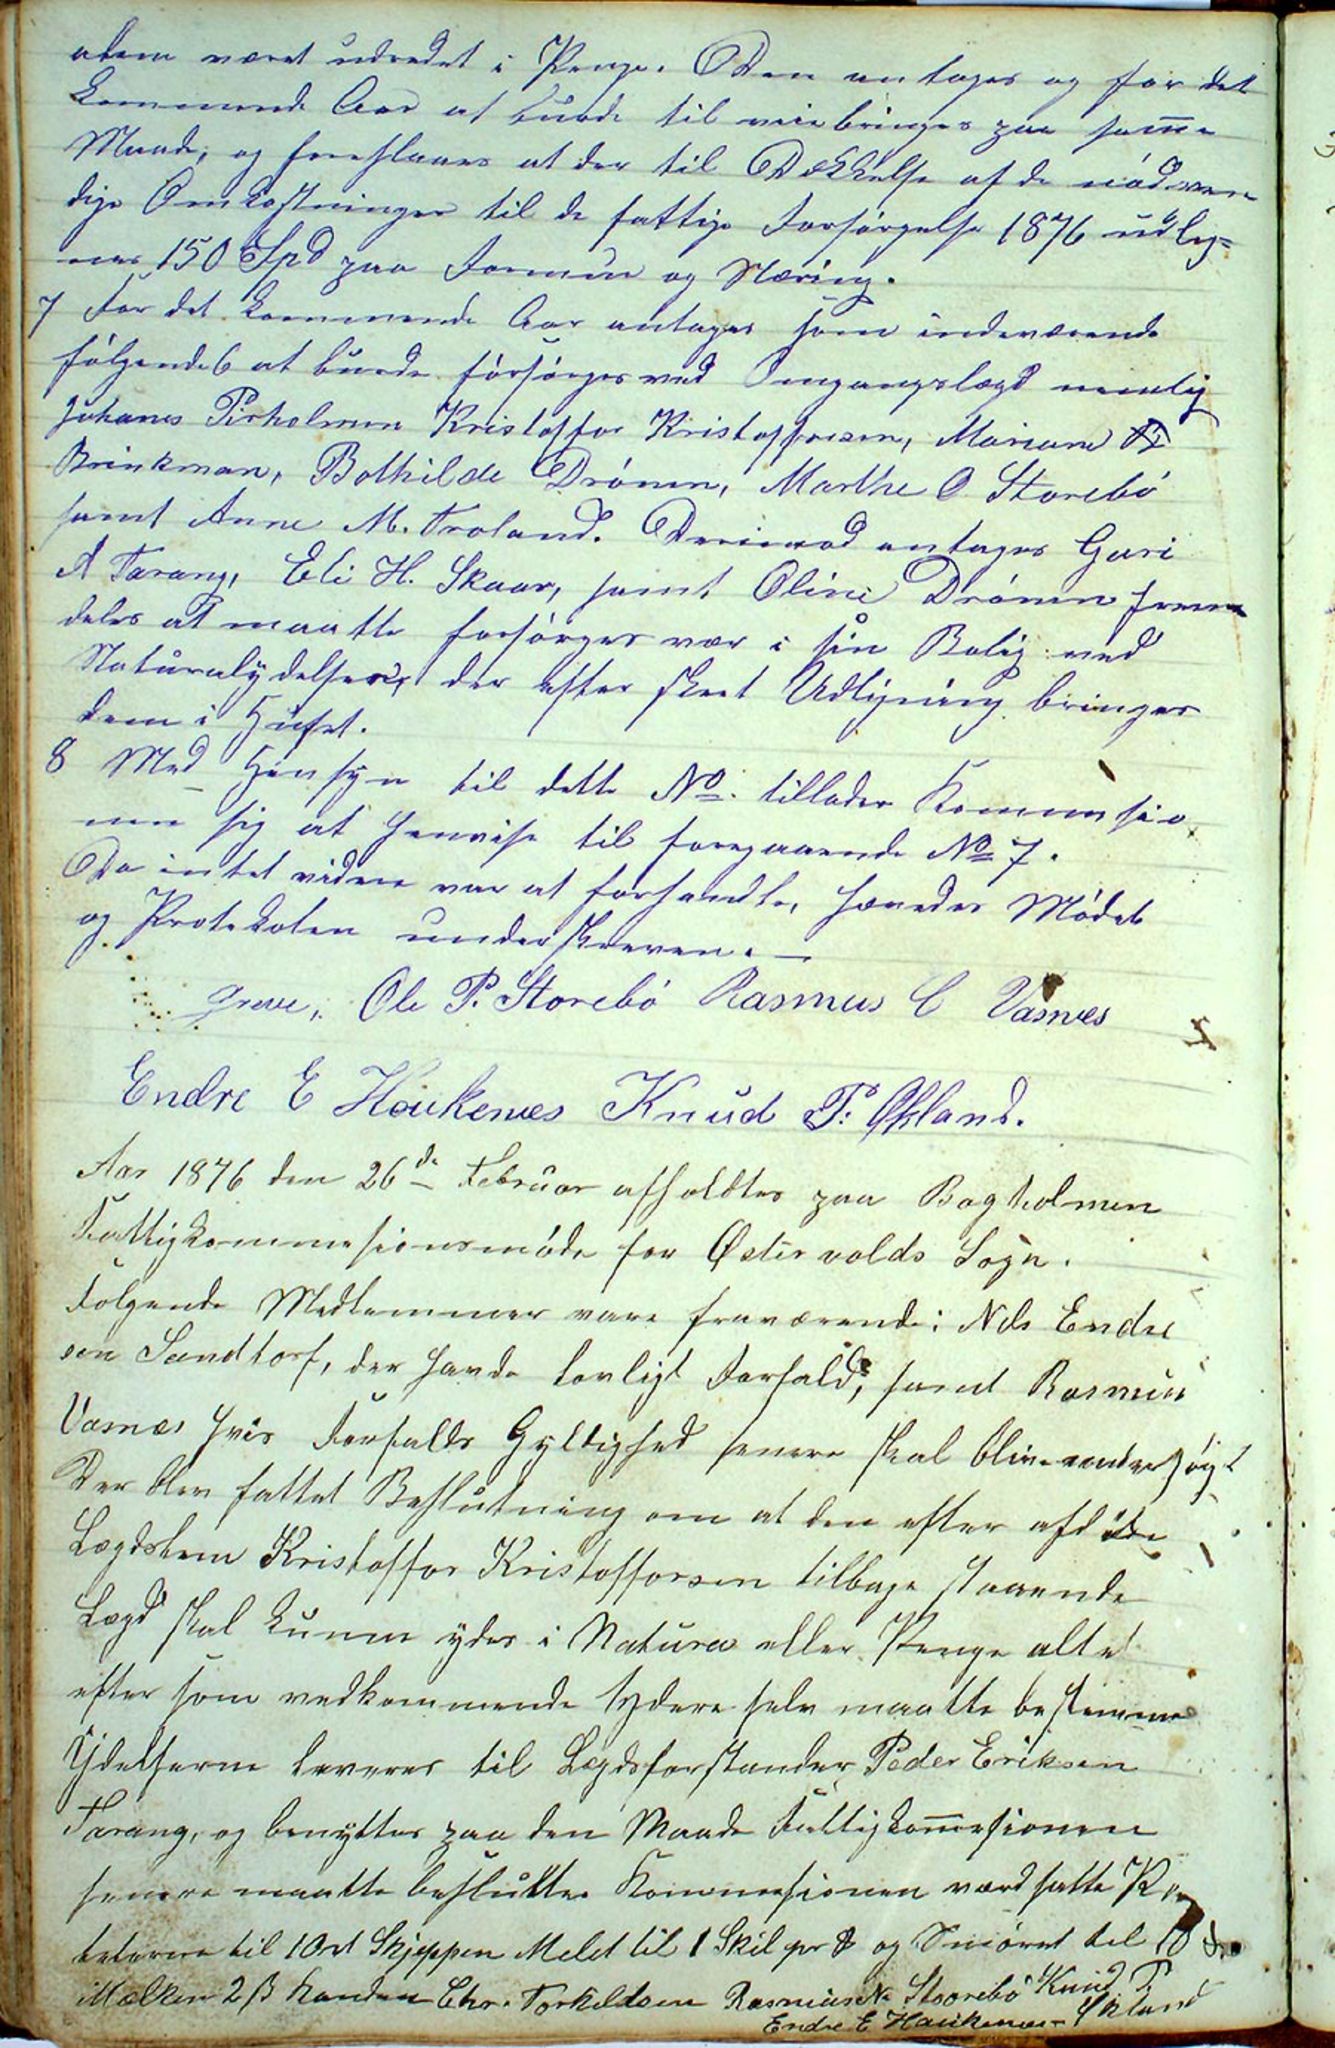 alene været udredet i Penge. Den antages og for det
kommende Aar at burde til veiebringes paa samme
Maade, og foreslaaes at der til Dækkelse af de nødven
dige Omkostninger til de fattige Forsørgelse 1876 udlig=
nes 150 Spd paa Formue og Næring.
7 For det kommende Aar antages som indeværende
følgende 6 at burde forsørges ved Omgangslægd nemlig
Johanes Pirholmen Kristoffer Kristoffersen, Mariane
Brinkman, Bothilde Drönen, Marthe O Storebö
samt Anne M. Froland. Derimod antages Guri
A Tarang, Eli H. Skaar, samt Oline Drönen frem
deles at maatte forsørges vær i sin Bolig ved
Naturalydelser, der efter skeet Udligning bringes
dem i Huset.
8 Med Hensyn til dette No. tillader Kommisio
nen sig at henvise til foregaaende No 7.
Da intet videre var at forhandle, hævedes Mødet
og Protokolen underskreven. —
Greve, Ole P. Storebö Rasmus C Vasnes
Endre E Houkenæs Knud P: Økland.
Aar 1876 den 26de Februar afholdtes paa Bagholmen
Fattigkommesionsmøde for Østervolds Sogn.
Følgende Medlemmer vare fraværende: Nels Endre
sen Sandtorf, der havde lovligt Forfald, samt Rasmus
Vasnes hvis Forfalds Gyldighed senere skal blive undersøgt
Der blev fattet Beslutning om at den efter afdøde
Lægdslem Kristoffer Kristoffersen tilbage staaende
Lægd skal kunne ydes i Natura eller Penge alt
efter som vedkommende Ydere selv maatte bestemme
Ydelserne leveres til Lægdsforstander Peder Eriksen
Tarang, og benyttes paa den Maade Fattigkommesionen
senere maatte beslutte. Kommesionen værdsatte Po
teterne til 1 Ort Skjeppen Melet til 1 Skil pr ℔ og Smøret til 10 ß
Mælken 2 ß Kanden Chr. Torkildsen Rasmus N Stoorebö Knud P
Endre E Haukenæs Økland